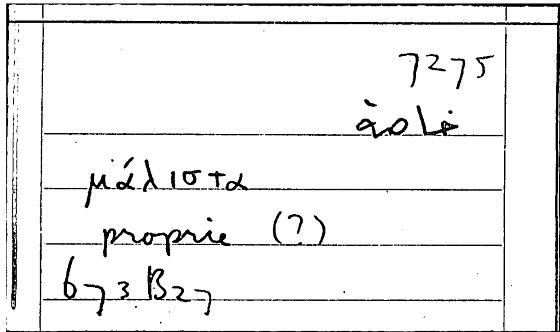 7275
خاصة
μάλιστα
proprie (?)
673B27